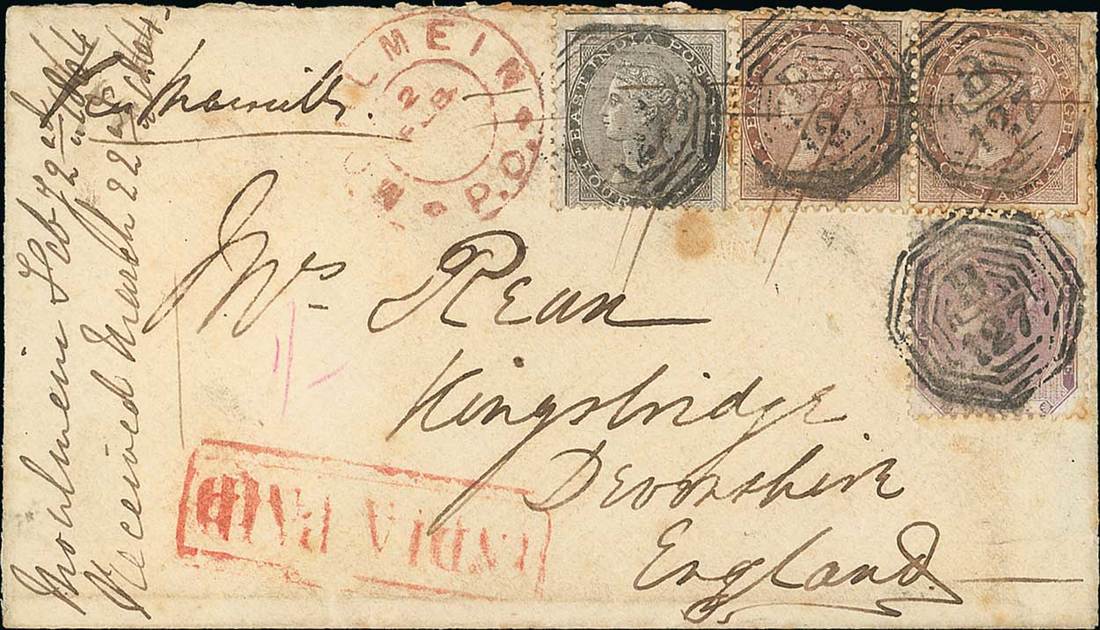 MOULMEIN P.O.
2
FE
EAST INDIA POSTAGE
FOUR
EAST INDIA POSTAGE
EAST INDIA POSTAGE
ONE ANNA
B
127
B
127
B
127
Mrs Rean
Kingsbridge
Devonshire
England
INDIA PAID
Moulmein Feby 2nd 1864
Received March 22nd 1864